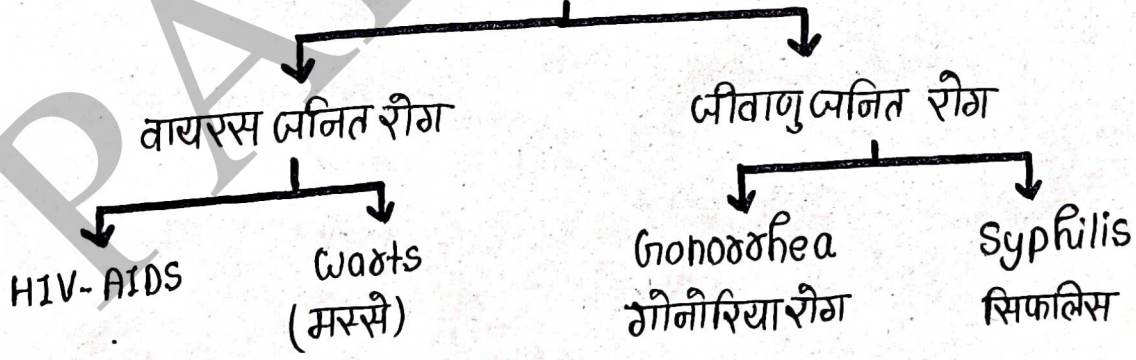 वायरस जनित रोग
जीवाणु जनित रोग
HIV-AIDS
Warts
(मस्से)
Gonorrhea
गोनोरिया रोग
Syphilis
सिफलिस